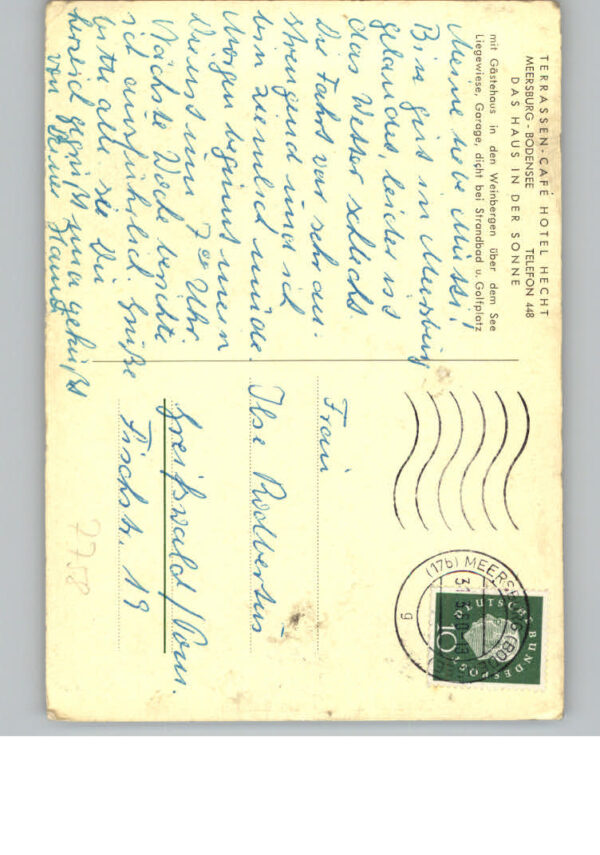 TERRASSEN-CAFÉ HOTEL HECHT
MEERSBURG - BODENSEE TELEFON 448
DAS HAUS IN DER SONNE
mit Gästehaus in den Weinbergen über dem See
Liegewiese, Garage, dicht bei Strandbad u. Golfplatz
Meine liebe Mutti!
Bin gut in Meersburg
gelandet, leider ist
das Wetter schlecht.
Die Fahrt war sehr an-
strengend und ich
bin ziemlich müde.
Morgen beginnt mein
Dienst um 7 00 Uhr.
Nächste Woche berichte
ich ausführlich. Grüße
bitte alle. Sei Du
herzlich gegrüßt und geküßt
von Deiner
Frau
Ilse
Greifswald / Pom.
Fischstr. 19
(17b) MEERSBURG (BODENSEE)
g
DEUTSCHE BUNDESPOST
10
7758